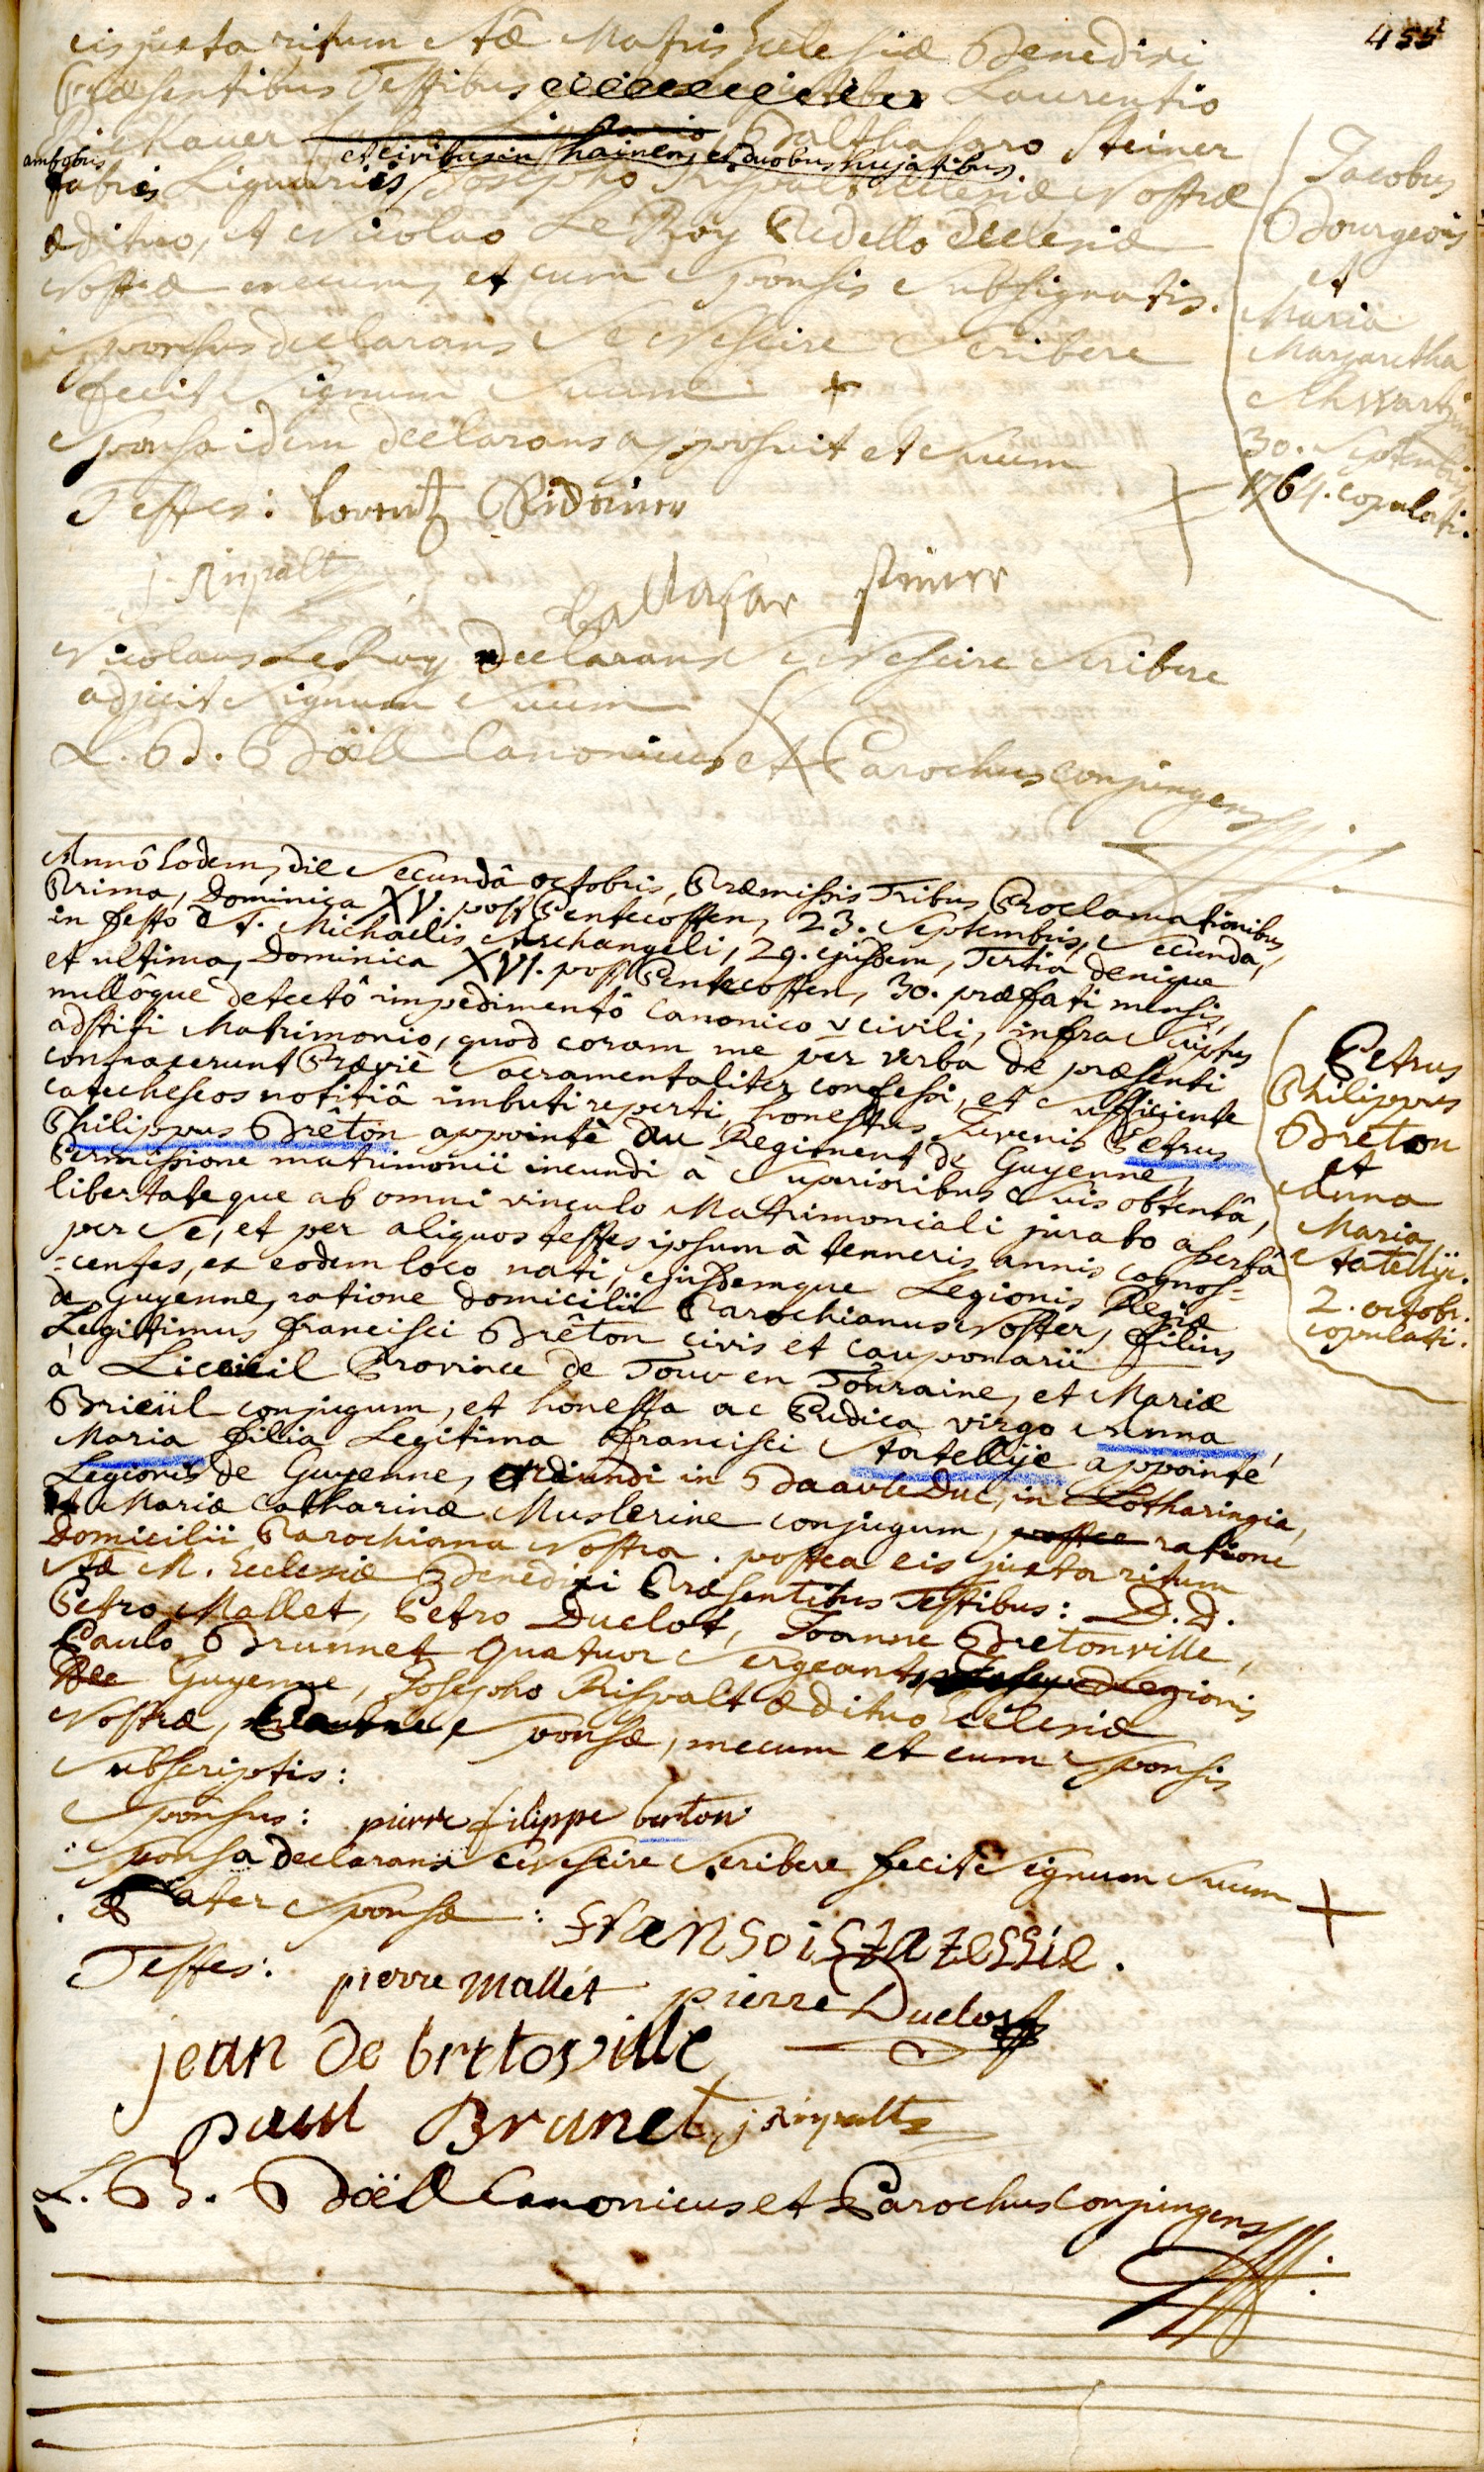 455
eis juxta ritum stæ Matris Ecclesiæ Benedixi
Præsentibus Testibus Laurentio
Balthasaro Steiner
ambobus et civibus in Hainen, et duobus hujatibus.
fabris Lignariis Josepho Rispalt Ecclesiæ Nostræ
ædituo, et Nicolao Le Roy Pedello Ecclesiæ
Nostræ mecum, et cum Sponsis subsignatis.
Sponsus declarans se Nescire Scribere
fecit Signum Suum +
Sponsa idem declarans apposuit et suum
Testes: Lorentz
j. Rispalt
Baltasar steiner
Nicolaus Le Roy declarans se Nescire Scribere
adjecit Signum Suum
L. B. Böell Canonicus et Parochus conjungens
Jacobus
Bourgeois
et
Maria
Margaretha
Schwartzin
30. Septembris
1764. copulati.
Annô Eodem, die Secundâ octobris, Præmissis Tribus Proclamationibus,
Prima, Dominica XV. post Pentecosten, 23. Septembris, Secunda,
in festo St. Michaelis Archangeli, 29. ejusdem, Tertia denique
et ultima, Dominica XVI. post Pentecosten, 30. præfati mensis,
nullôque detectô impedimentô canonico v civili, infra scriptus
adstiti Matrimonio, quod coram me per verba de præsenti
contraxerunt Præviè Sacramentaliter confessi, et sufficiente
catecheseos notitiâ imbuti reperti, honestus Juvenis Petrus
Philippus Brêton appointè du Regiment de Guyenne,
Permissione matrimonii ineundi à Superioribus suis obtentâ,
libertateque ab omni vinculo Matrimoniali jurato assertâ
per Se, et per aliquos testes ipsum â tenneris annis cognos=
=centes, ex eodem loco nati, ejusdemque Legionis Regiæ
de Guyenne, ratione domicilii Parochianus Noster, filius
Legittimus Francisci Brêton civis et cauponarii
à Licüeil Province de Touv en Touraine, et Mariæ
Brieüil conjugum, et honesta ac Pudica virgo Anna
Maria filia Legitima Francisci Statellije appointé
Legionis de Guyenne, oriundi in Baarle Duc, in Lotharingia,
et Mariæ Catharinæ Muslerine conjugum, postea ratione
Domicilii Parochiana Nostra. postea eis juxta ritum
Stæ M. Ecclesiæ Benedixi Præsentibus Testibus: D.D.
Petro Mallet, Petro Duclot, Joanne Bretonville,
Paulo Brunnet Quatuor Sergeants Legionis
de Guyenne, Josepho Rispalt ædituo Ecclesiæ
Nostræ, Sponsæ, mecum et cum Sponsis
Subscriptis:
Sponsus: pierre filippe berton
Sponsa declarans se Nescire Scribere fecit Signum Suum +
Pater Sponsæ: fransois statellie.
Testes: pierre Mallét pierre Duclos
jean de bretosville
paul Brunet j Rispalt
L. B. Böell Canonicus et Parochus Conjungens
Petrus
Philippus
Breton
et
Anna
Maria
Statellije.
2. octobr.
copulati.